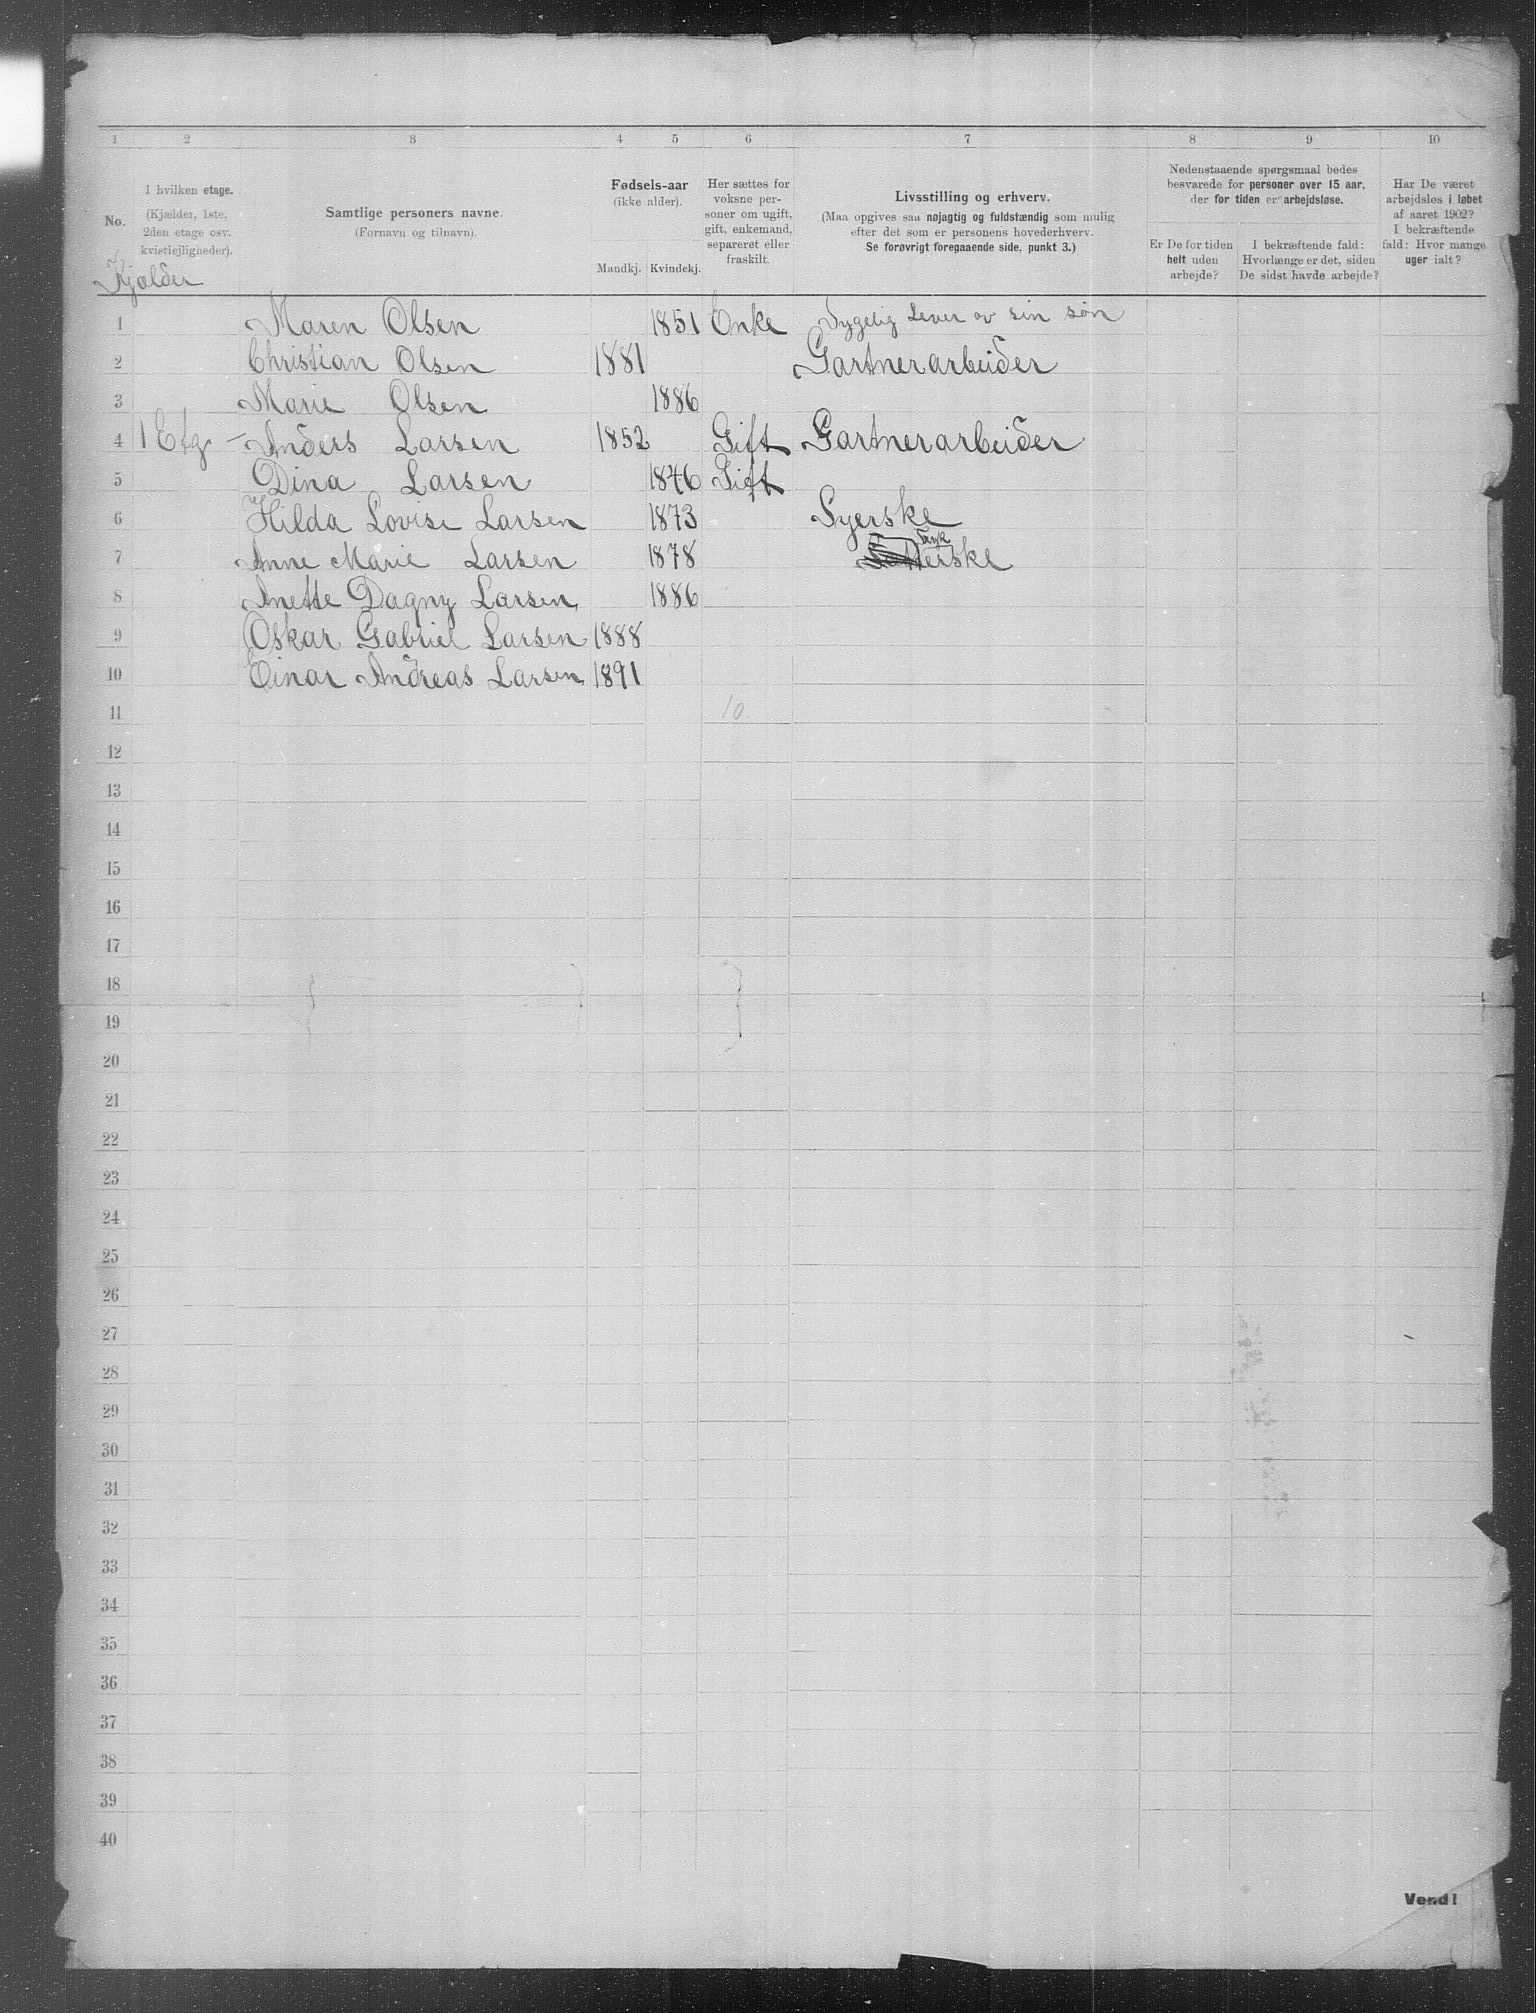 1 2 3 4 5 6 7 8 9 10
No.
I hvilken etage.
(Kjælder, 1ste.
2den etage osv.
kvistlejligheder).
Samtlige personers navne.
(Fornavn og tilnavn).
Fødsels-aar
(ikke alder).
Mandkj. Kvindekj.
Her sættes for
voksne per-
soner om ugift,
gift, enkemand,
separeret eller
fraskilt.
Livsstilling og erhverv.
(Maa opgives saa nøjagtig og fuldstændig som mulig
efter det som er personens hovederhverv.
Se forøvrigt foregaaende side, punkt 3.)
Nedenstaaende spørgsmaal bedes
besvarede for personer over 15 aar,
der for tiden er arbejdsløse.
Er De for tiden
helt uden
arbejde?
I bekræftende fald:
Hvorlænge er det, siden
De sidst havde arbejde?
Har De været
arbejdsløs i løbet
af aaret 1902?
I bekræftende
fald: Hvor mange
uger ialt?
Kjælder
1 Maren Olsen 1851 Enke Sygelig Lever av sin søn
2 Christian Olsen 1881 Gartnerarbeider
3 Marie Olsen 1886
4 1 Etg - Anders Larsen 1852 Gift Gartnerarbeider
5 Dina Larsen 1846 Gift
6 Hilda Lovise Larsen 1873 Syerske
7 Anne Marie Larsen 1878 erske
8 Anette Dagny Larsen 1886
9 Oskar Gabriel Larsen 1888
10 Einar Andreas Larsen 1891
11 10
12
13
14
15
16
17
18
19
20
21
22
23
24
25
26
27
28
29
30
31
32
33
34
35
36
37
38
39
40
Vend!